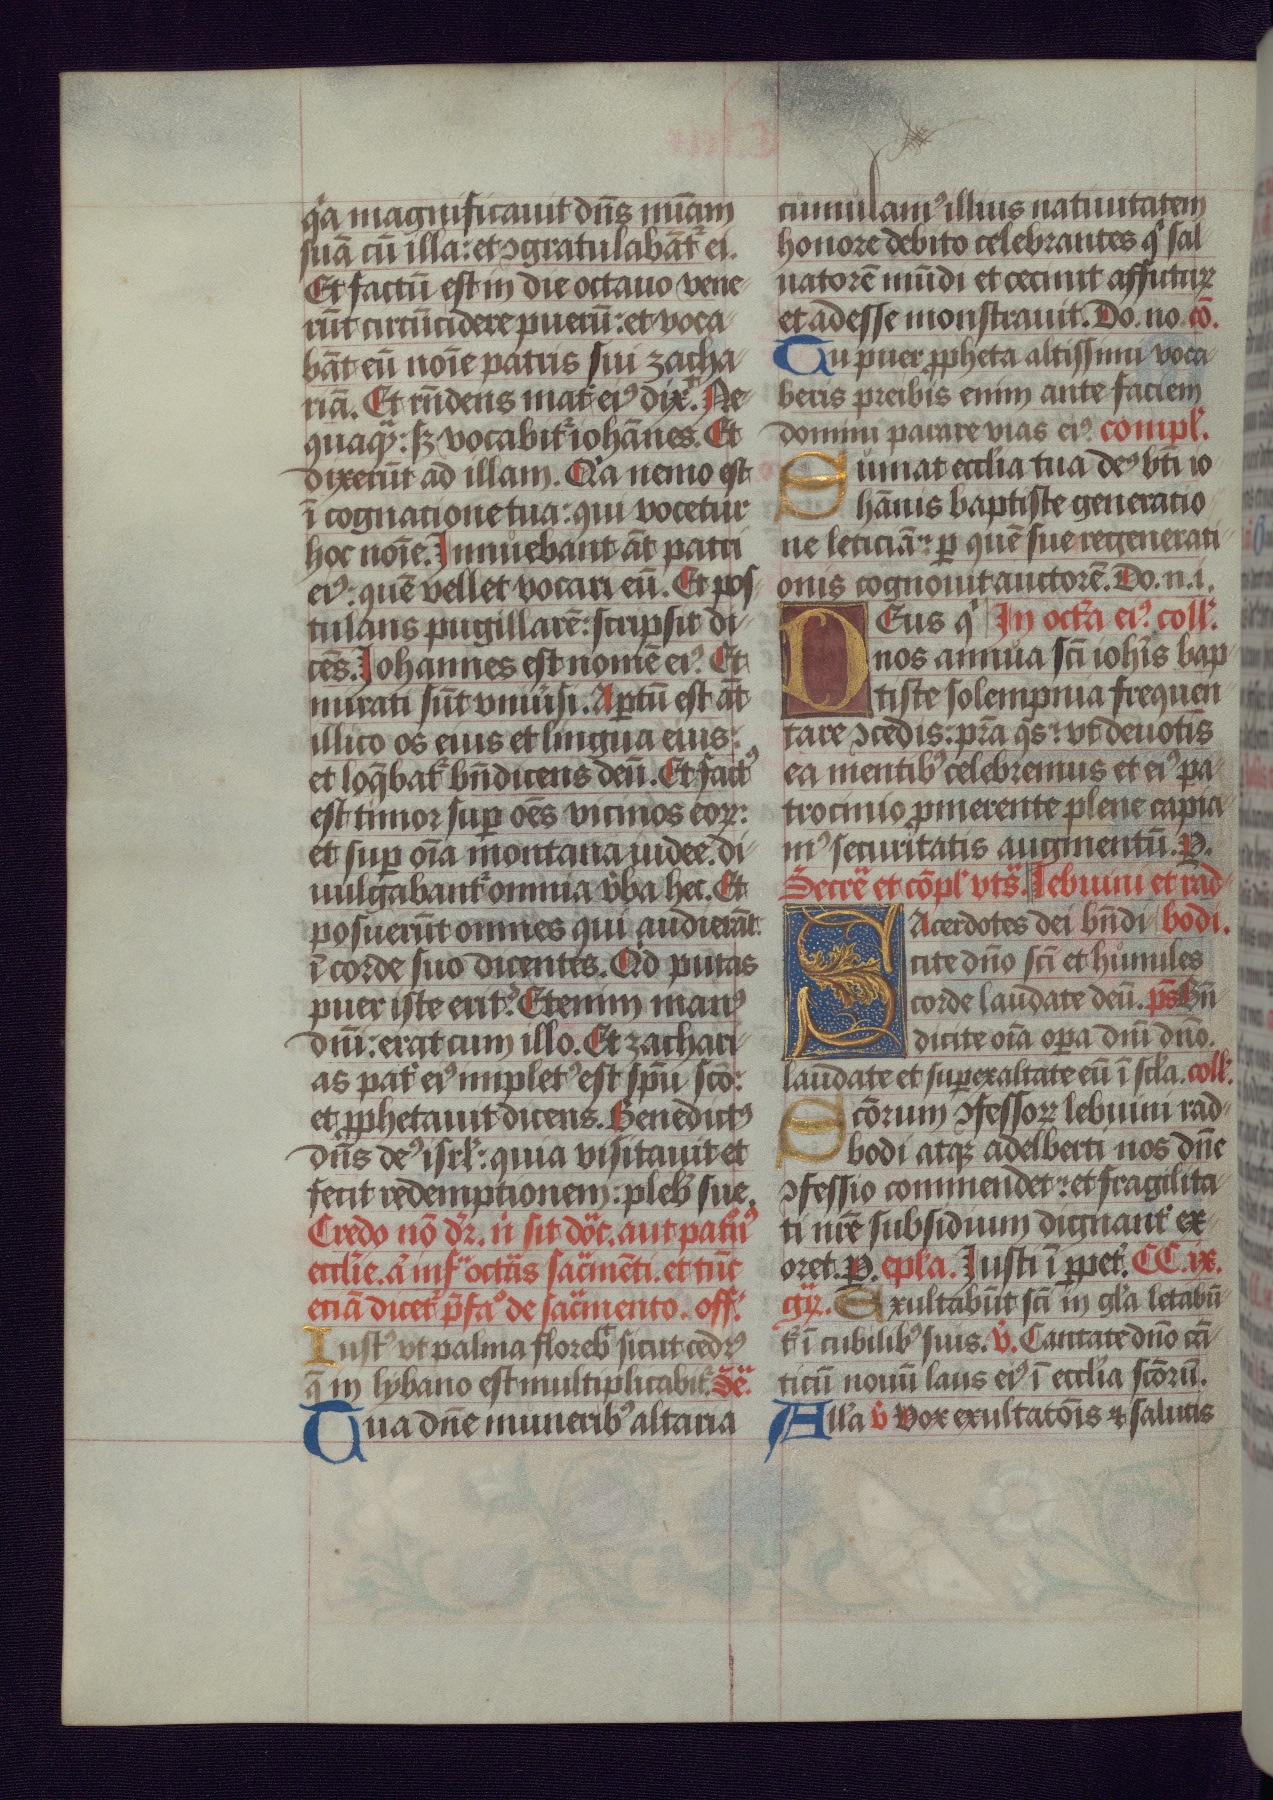 q͛a magnificauit dn̄s mīam
suā cū illa: et ꝯgratulabāt͛ ei.
Et factū est in die octauo vene-
rūt circūcidere puerū: et voca-
bāt eū noīe patris sui zacha-
riā. Et rn̄dens mat͛ eiꝰ dix͛. Ne-
quaqͣ: sꝫ vocabit͛ iohānes. Et
dixerūt ad illam. Q͛a nemo est
ī cognatione tua: qui vocetur
hoc noīe. Innuebant āt patri
eiꝰ: quē vellet vocari eū. Et pos-
tulans pugillarē: scripsit di-
cēs. Johannes est nomē eiꝰ. Et
mirati sūt vniu͛si. Aꝑtū est āt
illico os eius et lingua eius:
et loq̄bat͛ bn̄dicens deū. Et factꝰ
est timor suꝑ oēs vicinos eoꝝ:
et suꝑ oīa montana iudee. di-
uulgabant͛ omnia v͛ba hec. Et
posuerūt omnes qui audierāt
ī corde suo dicentes. Qd putas
puer iste erit? Etenim manꝰ
dn̄i: erat cum illo. Et zachari-
as pat͛ eiꝰ impletꝰ est sp̄u sc̄o:
et ꝓphetauit dicens. Benedictꝰ
dn̄s deꝰ isrl͛: quia visitauit et
fecit redemptionem: pleb͛ sue.
Credo nō dr͛. n͛ sit doc͛. aut pat͛nꝰ
eccl͛ie. a͛ inf͛ octa͛s sac͛mēti. et tūc
etiā dicet͛ p̄fa͛o de sac͛mento. off͛.
Iustꝰ vt palma floreb͛ sicut cedrꝰ
q̄ in lybano est multiplicabit͛. se͛c.
Tua dn̄e muneribꝰ altaria
cumulamꝰ illius natiuitatem
honore debito celebrantes q͛ sal
uatorē mūdi et cecinit affutuꝝ
et adesse monstrauit. Do. no. cō.
Tu puer ꝓpheta altissimi voca-
beris preibis enim ante faciem
domini parare vias eiꝰ. compl͛.
Sumat eccl͛ia tua deꝰ bt̄i io
hānis baptiste generatio
ne leticiā: ꝑ quē sue regenerati-
onis cognouit auctorē. Do. n. i.
DEus q͛ In octa͛ eiꝰ. coll͛.
nos annua sc̄i ioh͛is bap-
tiste solempnia frequen
tare ꝯcedis: pr̄a q͛s: vt deuotis
ea mentibꝰ celebremus et eiꝰ pa-
trocinio ꝓmerente plene capia-
mꝰ securitatis augmentū. P.
Secre͛ et cōpl͛ vts͛. Lebuini et rad-
SAcerdotes dei bn̄di bodi.
cite dn̄o sc̄i et humiles
corde laudate deū. ps̄ Bn̄
dicite oīa oꝑa dn̄i dn̄o.
laudate et suꝑexaltate eū ī scl͛a. coll͛.
Sc̄orum ꝯfessoꝝ lebuini rad-
bodi atqꝫ adelberti nos dn̄e
ꝯfessio commendet: et fragilita-
ti nr̄e subsidium dignant͛ ex-
oret. P. epl͛a. Justi ī ꝑpet͛. CC. ix.
gr͛. Exultabūt sc̄i in gl͛a letabū-
t͛ ī cubilibꝰ suis. v͛. Cantate dn̄o cā-
ticū nouū laus eiꝰ ī eccl͛ia sc̄orū.
All͛a v͛ Vox exultatōis ⁊ salutis